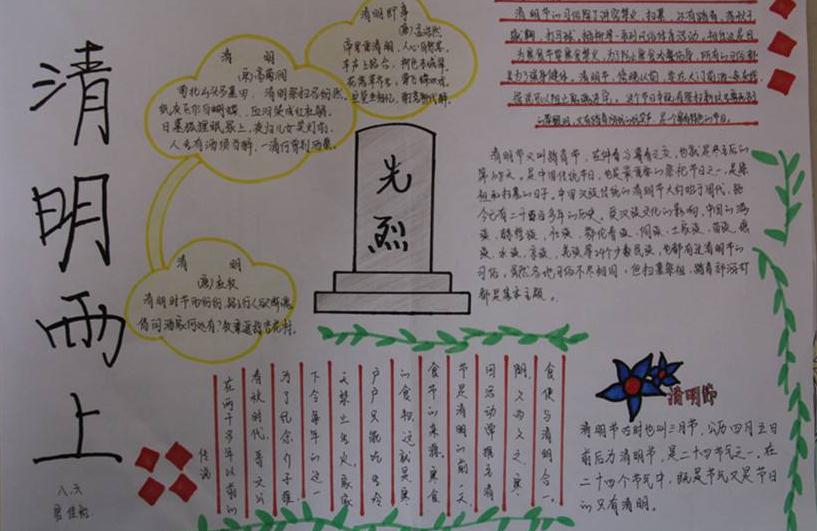 清明雨上
清明
(宋)高菊涧
南北山头多墓田,清明祭扫各纷然。
纸灰飞作白蝴蝶,血泪染成红杜鹃。
日暮狐狸眠冢上,夜归儿女笑灯前。
人生有酒须当醉,一滴何曾到九泉。
清明即事
(唐)孟浩然
帝里重清明,人心自愁思。
车声上路合,柳色东城翠。
花落草齐生,莺飞蝶双戏。
空堂坐相忆,酌茗聊代醉。
清明
(唐)杜牧
清明时节雨纷纷,路上行人欲断魂。
借问酒家何处有?牧童遥指杏花村。
先烈
清明节的习俗除了讲究禁火、扫墓,还有踏青、荡秋千
蹴鞠、打马球、插柳等一系列风俗体育活动。相传这是因
为寒食节要寒食禁火,为了防止寒食冷餐伤身,所以
来参加
清明节又叫踏青节,在仲春与暮春之交,也就是冬至后的
第108天。是中国传统节日,也是最重要的祭祀节日之一,是祭
祖和扫墓的日子。中国汉族传统的清明节大约始于周代,距
今已有二千五百多年的历史。受汉族文化的影响,中国的满
族、赫哲族、壮族、鄂伦春族、侗族、土家族、苗族、瑶
族、水族、京族、羌族等24个少数民族,也都有过清明节的
习俗。虽然各地习俗不尽相同,但扫墓祭祖、踏青郊游
都是基本主题。
食便与清明合一。
阴,久而久之,寒
间活动常推至清
节是清明的前一天,
食节的来源。寒食
的食物,这就是寒
户户只能吃生冷
天禁止生火,家家
下令每年的这一
为了纪念介子推,
春秋时代,晋文公
在两千多年以前的
传说
清明节
清明节古时也叫三月节,公为四月五日
前后为清明节,是二十四节气之一。在
二十四个节气中,既是节气又是节日
的只有清明。
八.六